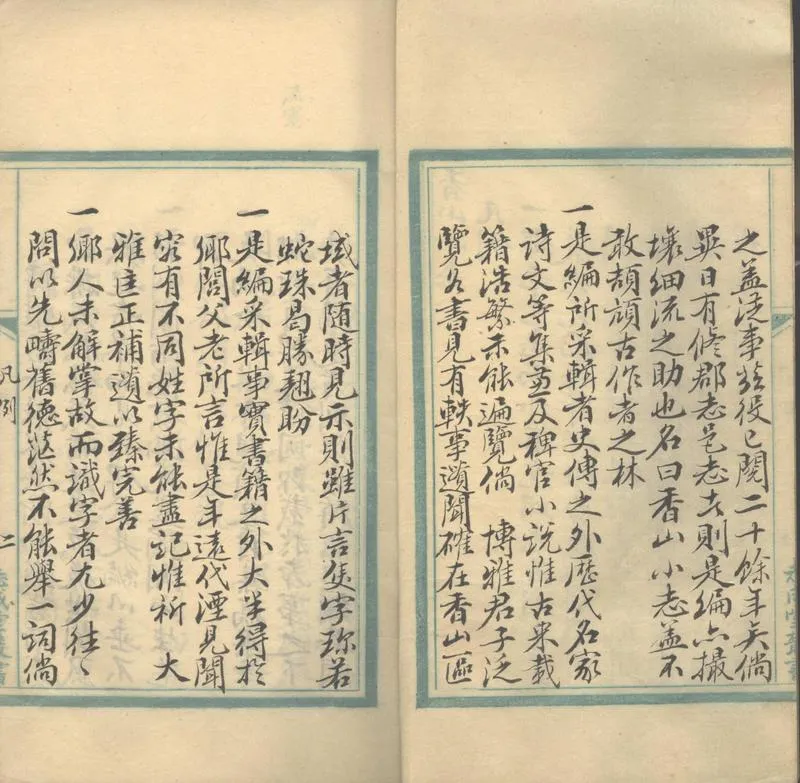 之益從事於役已閱二十餘年矣倘
異日有修郡志邑志者則是編亦撮
壤細流之助也名曰香山小志蓋不
敢頡頏古作者之林
一是編所采輯者史傳之外歷代名家
詩文等集旁及稗官小說惟古來載
籍浩繁未能遍覽倘 博雅君子泛
覽各書見有軼事遺聞確在香山區
域者隨時見示則雖片言隻字珍若
蛇珠曷勝翹盼
一是編采輯事實書籍之外大半得於
鄉閭父老所言惟是年遠代湮見聞
容有不同姓字未能盡記惟祈 大
雅匡正補遺以臻完善
一鄉人未解掌故而識字者尤少往〻
問以先疇舊德茫然不能舉一詞倘
凡例
二